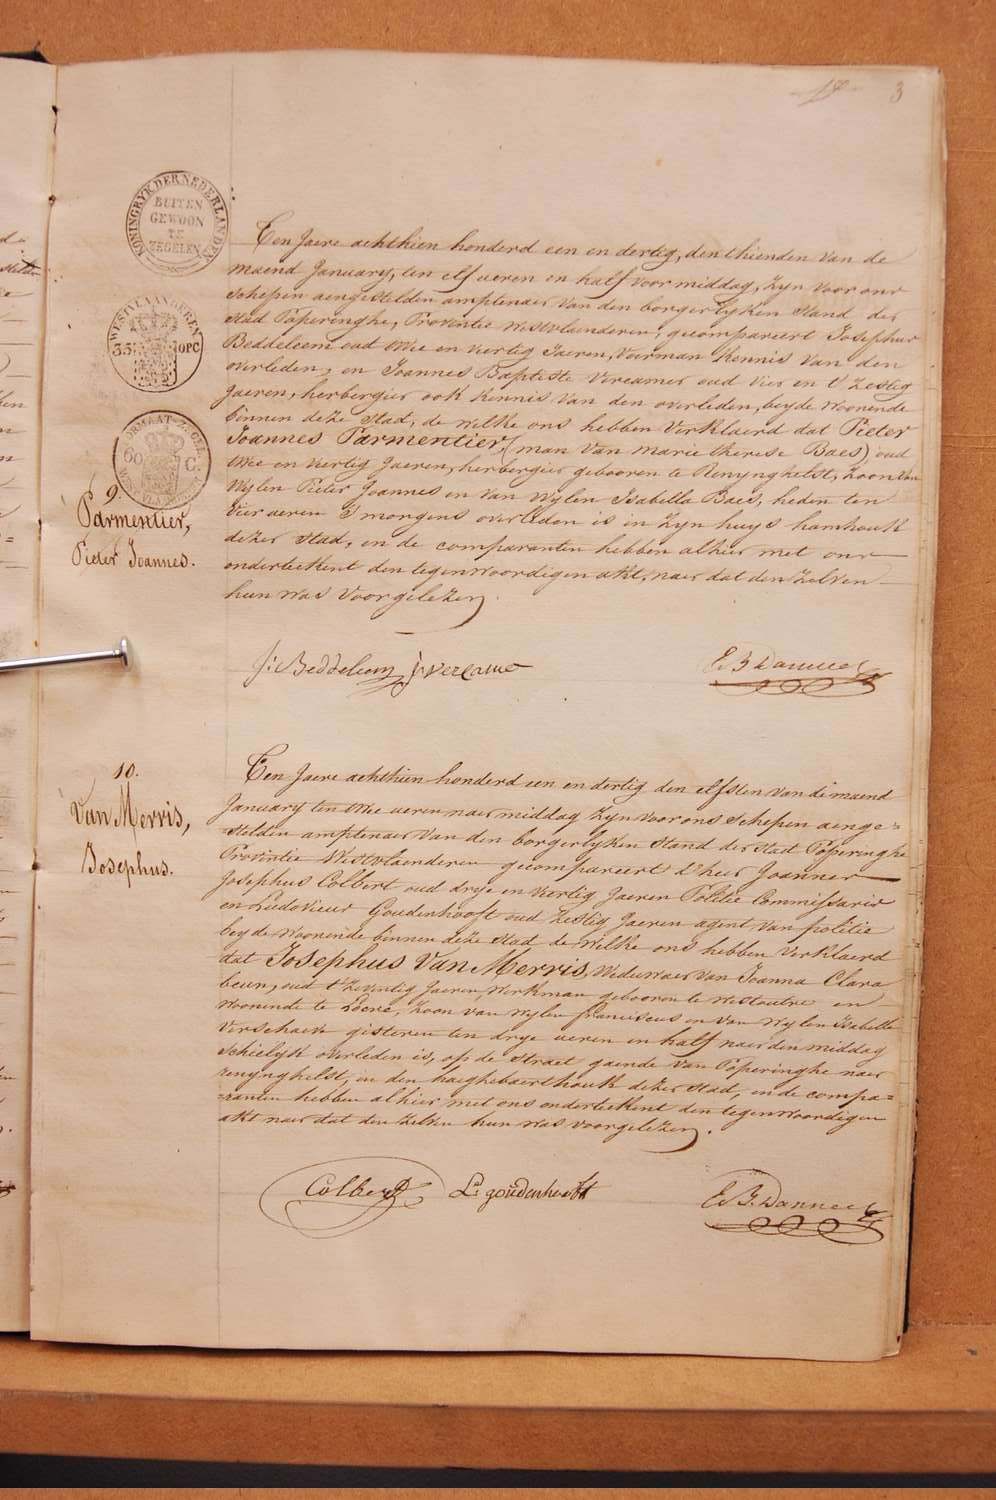 3
KONINGRYK DER NEDERLANDEN
BUITEN
GEWOON
TE
ZEGELEN
WESTVLAANDEREN
33 OPC
FORMAAT-ZEGEL
60 C.
9.
Parmentier,
Pieter Joannes.
Een Jaere achthien honderd een en dertig, den thienden van de
maend January, ten elf ueren en half voormiddag, zyn voor ons
Schepen aengestelden amptenaer van den borgerlyken stand der
stad Poperinghe, Provintie westvlaenderen, gecompareert Josephus
Beddeleem oud twee en viertig Jaeren, Voerman kennis van den
overleden, en Joannes Baptiste Vercamer oud vier en t'Zestig
Jaeren, herbergier ook kennis van den overleden, beyde woonende
binnen deze stad, de welke ons hebben verklaerd dat Pieter
Joannes Parmentier, (man van marie therese Baes) oud
twee en viertig Jaeren, herbergier gebooren te Renynghelst, Zoon van
Wylen Pieter Joannes en van wylen Isabelle Baes, heden ten
vier ueren s'morgens overleden is in zyn huys hamhouk
dezer stad, en de comparanten hebben alhier met ons
onderteekent den tegenwoordigen akt, naer dat den zelven
hun was voorgelezen.
J: Beddeleem j: vercame
E. B. Danneel
10.
Van Merris,
Josephus.
Een Jaere achthien honderd een en dertig den elfsten van de maend
January ten twee ueren naer middag zyn voor ons schepen aenge=
stelden amptenaer van den borgerlyken stand der stad Poperinghe
Provintie Westvlaenderen gecompareert d'heer Joannes
Josephus Colbert oud drye en viertig Jaeren Politie Commissaris
en Ludovicus Goudenhooft oud Zestig Jaeren agent van politie
beyde woonende binnen deze stad de welke ons hebben verklaerd
dat Josephus Van Merris, Weduwaer van Joanna Clara
beun, oud t'Zeventig Jaeren, Werkman gebooren te westoutre en
woonende te Locre, Zoon van wylen franciscus en van wylen Isabelle
Verschaeve gisteren ten drye ueren en half naer den middag
schielyk overleden is, op de straet gaende van Poperinghe naer
renynghelst, in den haeghebaerthouk dezer stad, en de compa=
ranten hebben alhier met ons onderteekent den tegenwoordigen
akt naer dat den zelven hun was voorgelezen.
Colbert L. goudenhooft
E. B. Danneel